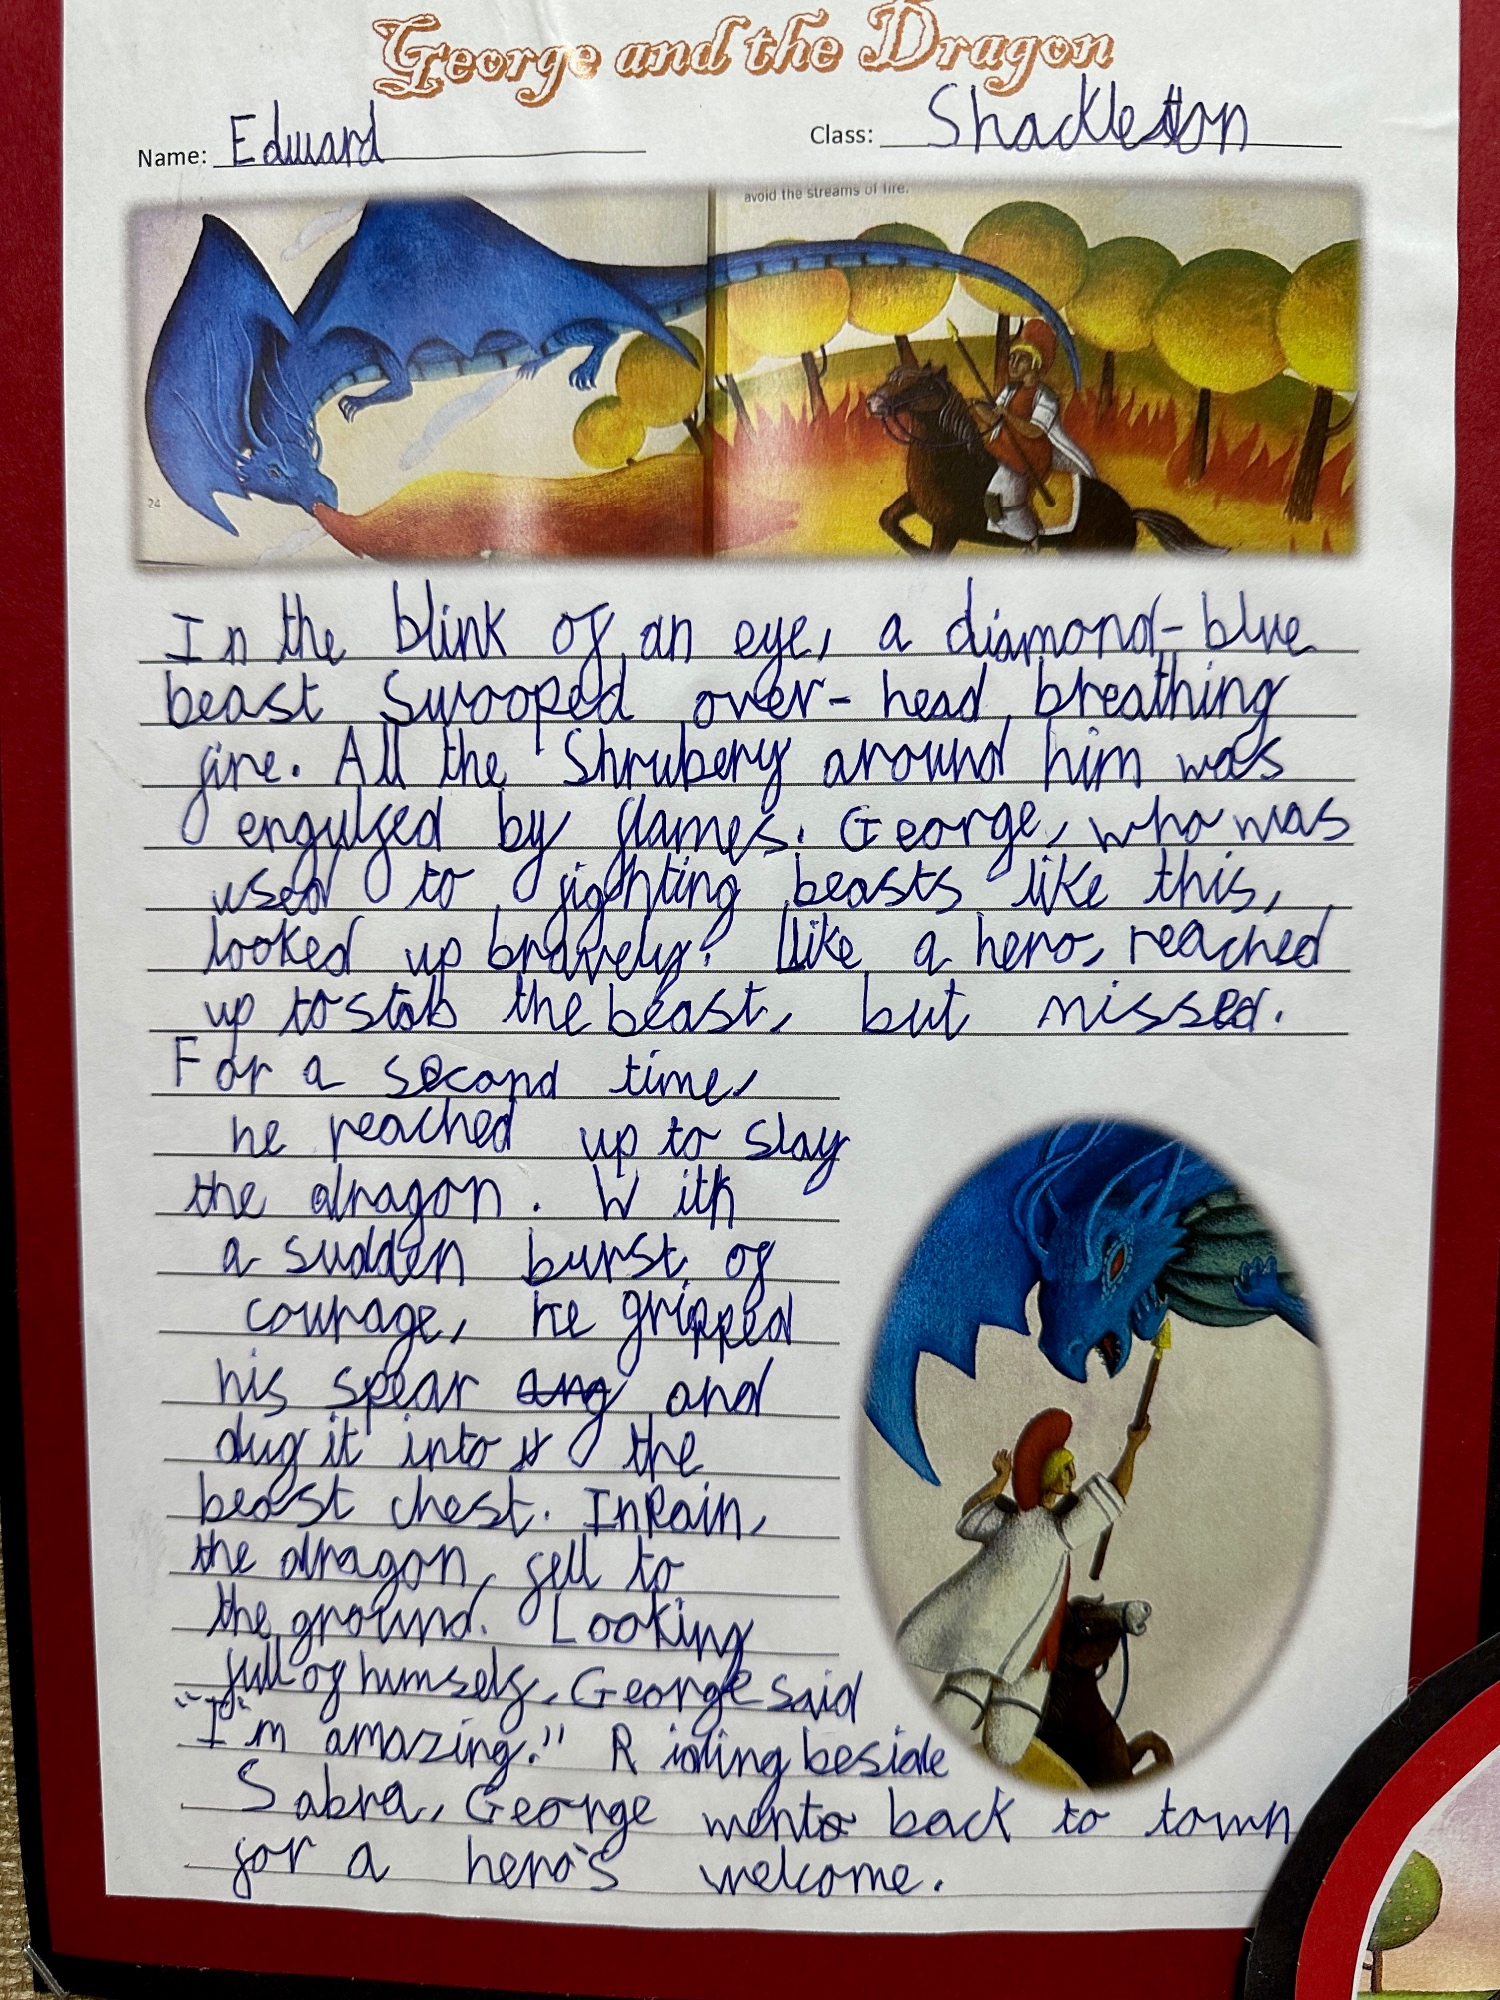 George and the Dragon
Name: Edward Class: Shackleton
avoid the streams of fire.
24
In the blink of an eye, a diamond-blue
beast swooped over-head, breathing
fire. All the Shrubery around him was
engulfed by flames. George, who was
used to fighting beasts like this,
looked up bravely? Like a hero, reached
up to stab the beast, but missed.
For a second time,
he reached up to slay
the dragon. With
a sudden burst of
courage, he gripped
his spear and
dug it into the
beast chest. In Pain,
the dragon, fell to
the ground. Looking
full of humself, George said
"I'm amazing." Riding beside
Sabra, George went back to town
for a hero's welcome.